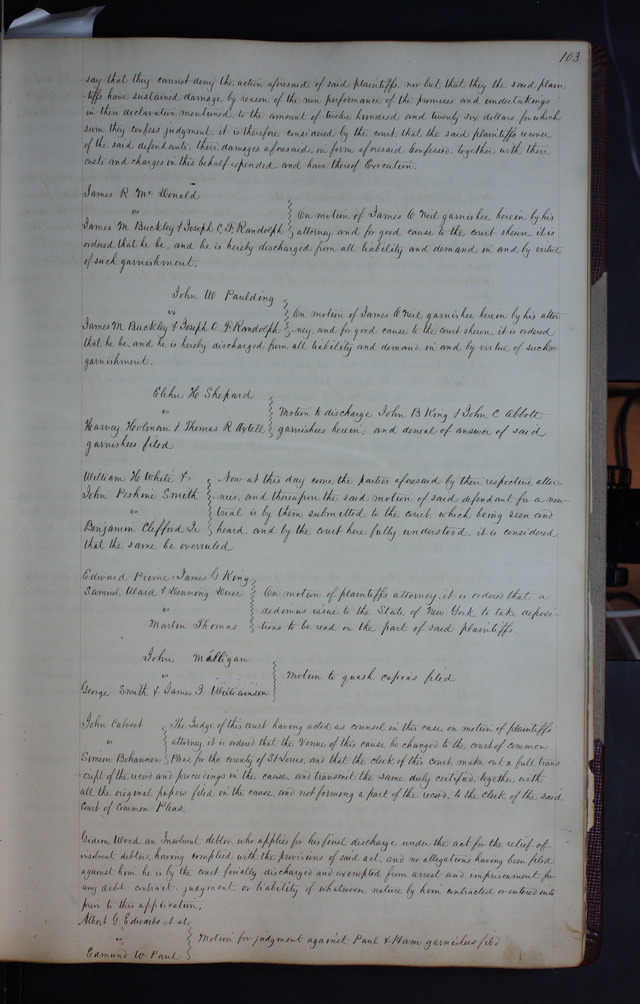 103
say that they cannot deny the action aforesaid of said plaintiffs, nor but that they the said plain
-tiffs have sustained damage by reason of the non performance of the promises and undertakings
in their declaration mentioned, to the amount of twelve hundred and twenty six dollars for which
sum they confess judgment, it is therefore considered by the court that the said plaintiffs recover
of the said defendants, their damages aforesaid, in form aforesaid Confessed, together with their
costs and charges in this behalf expended and have thereof Execution.
James R Mc Donald
vs
On motion of James O Neil garnishee herein by his
James M Buckley & Joseph C. F. Randolph attorney and for good cause to the court shewn it is
ordered that he be, and he is hereby discharged from all liability and demand in and by virtue
of such garnishment.
John W Paulding
vs
On motion of James O Neil garnishee herein by his attor
James M. Buckley & Joseph C. F. Randolph ney, and for good cause to the court shewn it is ordered
that he be, and he is hereby discharged from all liability and demand, in and by virtue of such
garnishment.
Elihu H Shepard
vs
Motion to discharge John B King & John C Abbott
Harvey Holman & Thomas R Aytell garnishees herein; and denial of answer of said
garnishees filed
William H White & Now at this day come the parties aforesaid by their respective attor-
John Smith nies, and thereupon the said motion of said defendant for a new
vs trial is by them submitted to the court, which being seen and
Benjamin Clefford Jr heard and by the court here fully understood, it is considered
that the same be overruled
Edward Prime, James G King,
Samuel Ward & On motion of plaintiffs attorney, it is ordered that a
vs dedimus issue to the State of New York to take deposi-
Martin Thomas -tions to be read on the part of said plaintiffs.
John Milligan
vs Motion to quash capias filed
George Smith & James J Williamson
John Calvert The Judge of this Court having acted as counsel in this case on motion of plaintiffs
vs attorney it is ordered that the Venue of this cause be changed to the court of common
Simeon Bohannon Pleas for the county of St Louis, and that the clerk of this court make out a full trans
cript of the record and proceedings in the cause, and transmit the same duly certified, together with
all the original papers filed in the cause, and not forming a part of the record, to the clerk of the said
Court of Common Pleas.
Gideon Wood an Insolvent debtor, who applies for his final discharge under the act for the relief of
insolvent debtors, having complied with the provisions of said act, and no allegations having been filed
against him he is by the court finally discharged and exempted from arrest and imprisonment for
any debt, contract, judgment, or liability of whatsoever nature by him contracted or entered into
prior to this application.
Albert G. Edwards et al
vs Motion for judgment against Paul & Ham garnishees filed
Edmund W Paul